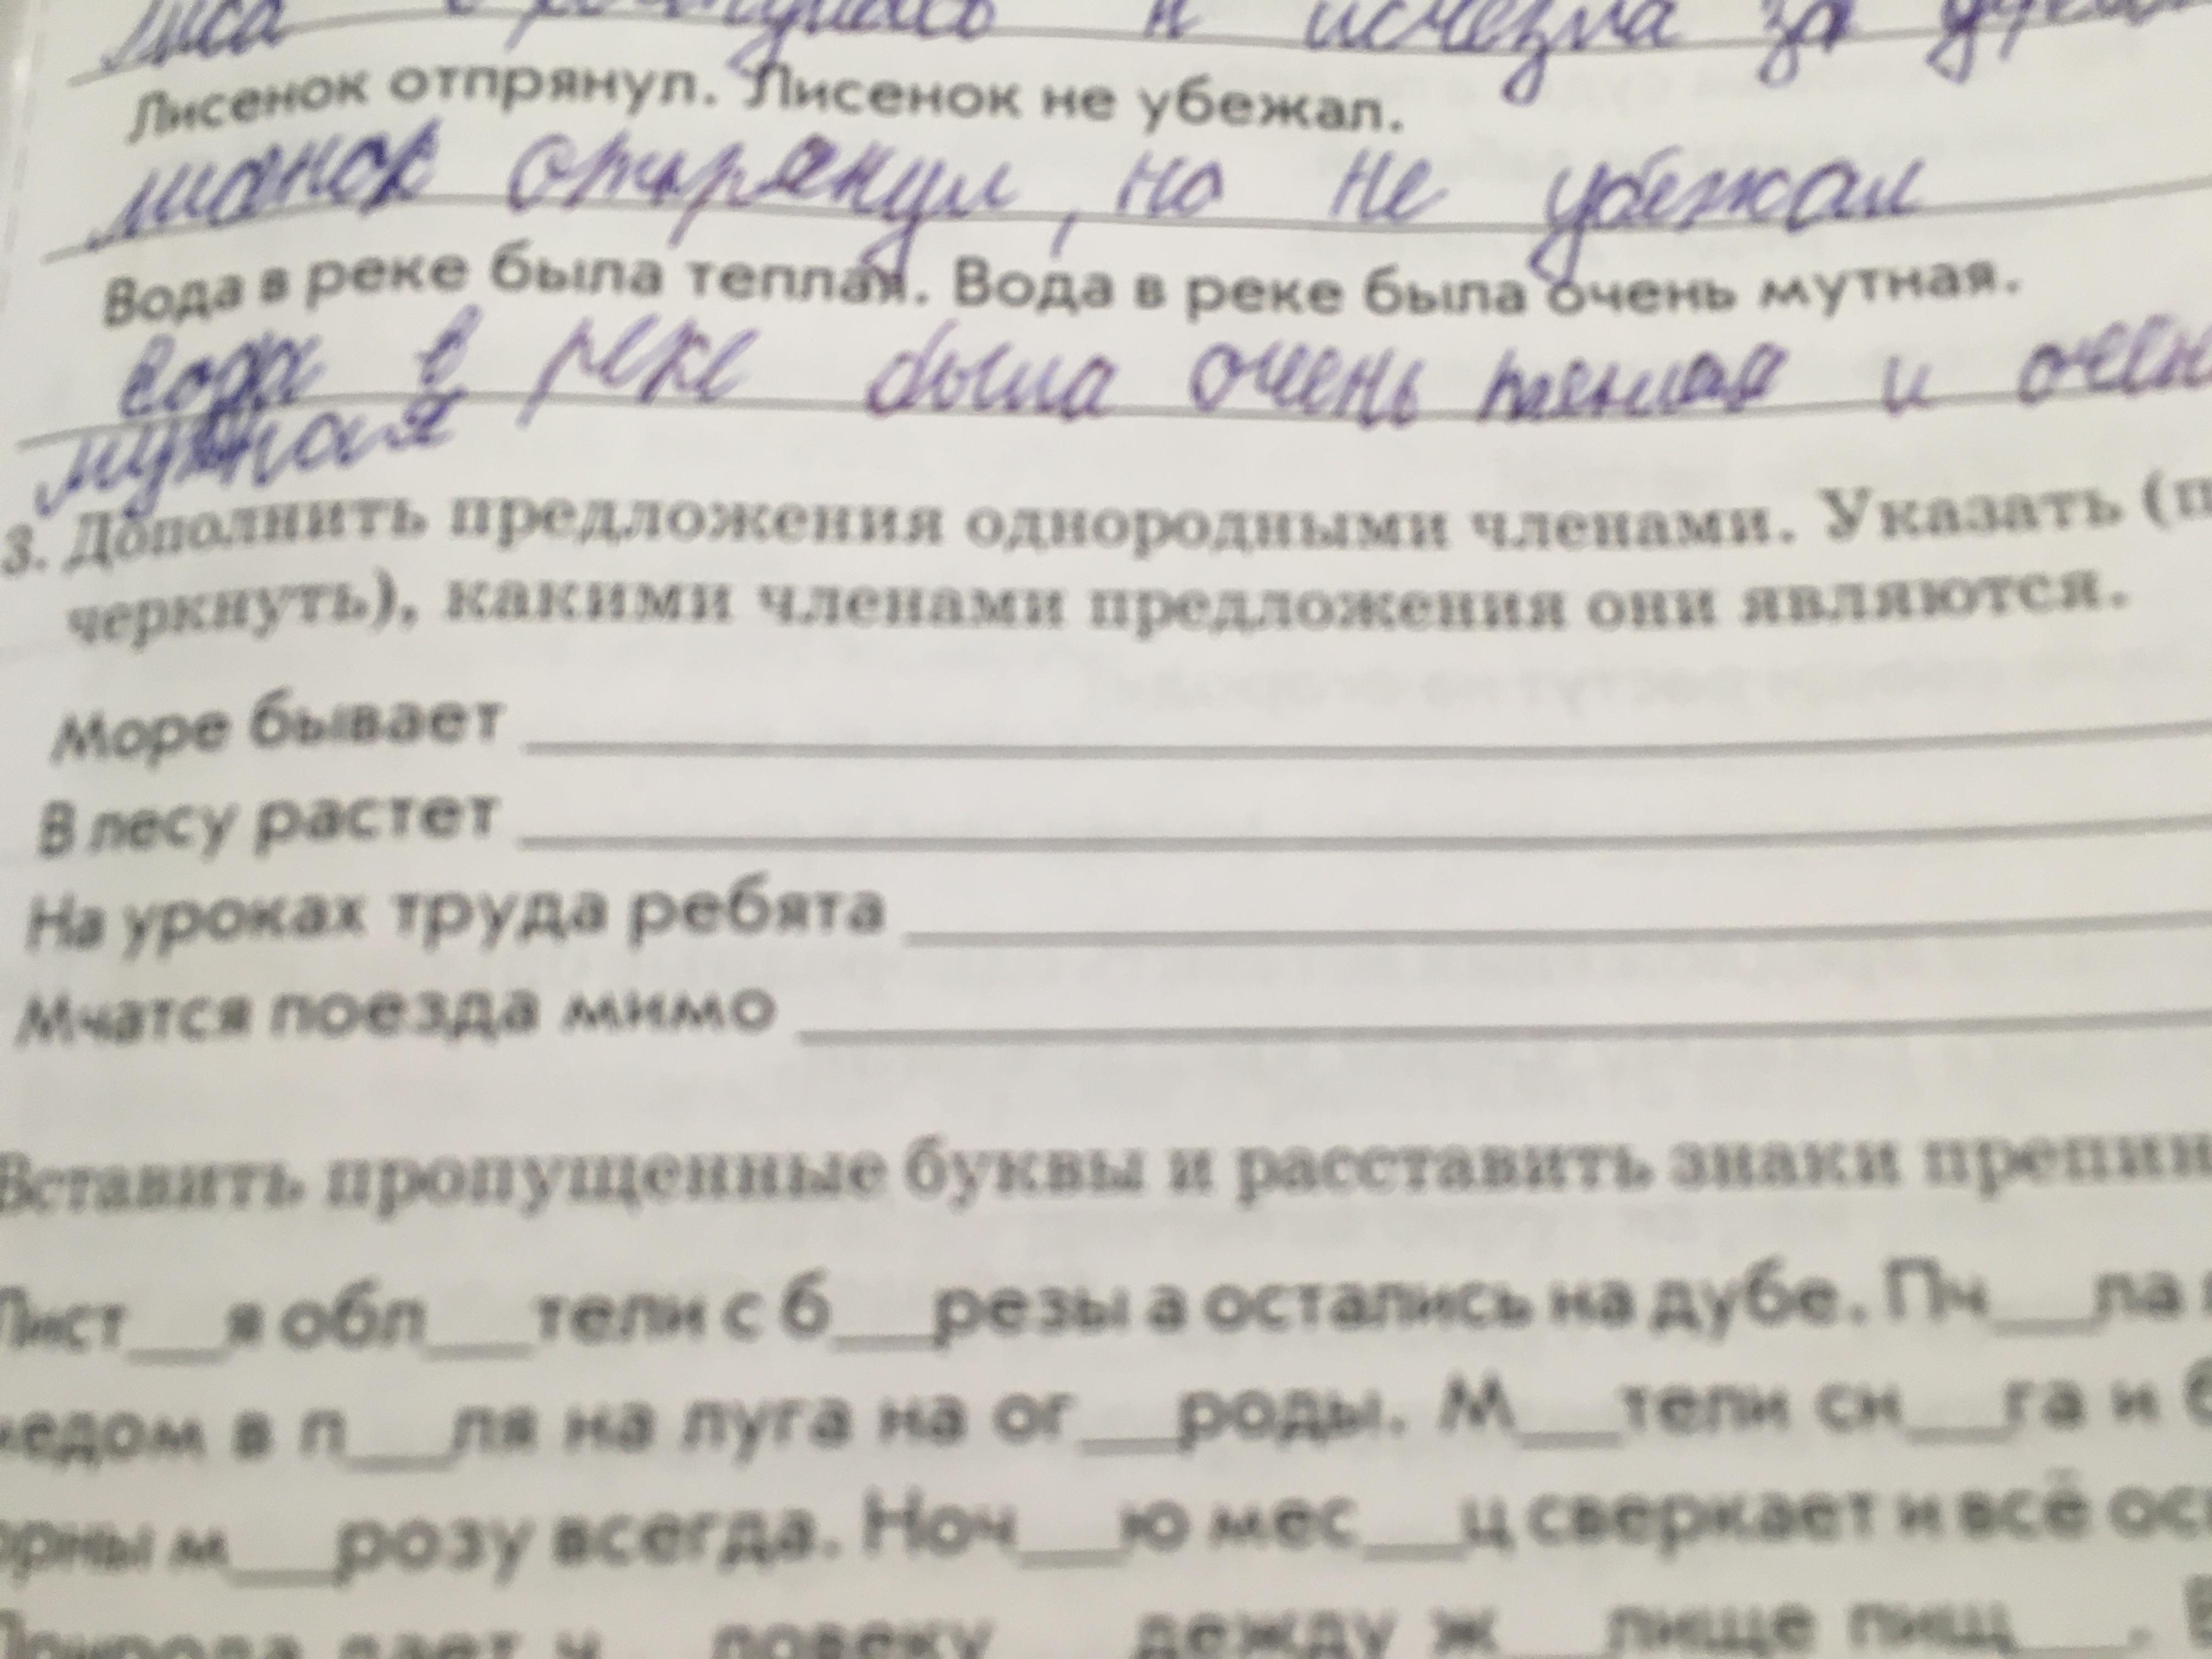 лиса и исчезла за
Лисенок отпрянул. Лисенок не убежал.
отпрянул, но не убежал
Вода в реке была теплая. Вода в реке была очень мутная.
вода в реке была очень и
мутная
3. Дополнить предложения однородными членами. Указать (п
черкнуть), какими членами предложения они являются.
Море бывает
В лесу растет
На уроках труда ребята
Мчатся поезда мимо
Вставить пропущенные буквы и расставить знаки препин
Лист__я обл__тели с б__резы а остались на дубе. Пч__ла
медом в п__ля на луга на ог__роды. М__тели сн__га и б
орны м__розу всегда. Ноч__ю мес__ц сверкает и всё ос
Природа дает ч__ловеку __дежду ж__лище пищ__.